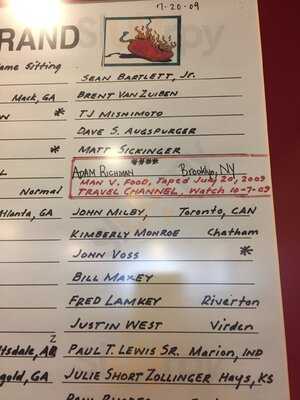 7-20-09
RAND
ame Sitting
SEAN BARTLETT, Jr.
Mack, GA BRENT VAN ZUIBEN
* TJ MISHIMOTO
DAVE S. AUGSPURGER
* MATT SICKINGER
****
ADAM RICHMAN Brooklyn, NY
MAN V. FOOD, Taped July 20, 2009
Normal TRAVEL CHANNEL, Watch 10-7-09
tlanta, GA JOHN MILBY, Toronto, CAN
KIMBERLY MONROE Chatham
JOHN VOSS *
BILL MAXEY
FRED LAMKEY Riverton
JUSTIN WEST Virden
2
ttsdale, AR PAUL T. LEWIS SR. Marion, IND
gold, GA JULIE SHORT ZOLLINGER HAYS, KS